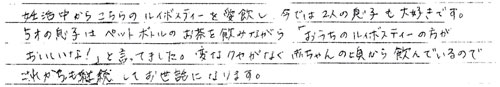 妊活中からこちらのルイボスティーを愛飲し今では2人の息子も大好きです。
5才の息子はペットボトルのお茶を飲みながら「おうちのルイボスティーの方が
おいしいな!」と言ってました。変なクセがなく赤ちゃんの頃から飲んでいるので
これからも継続してお世話になります。